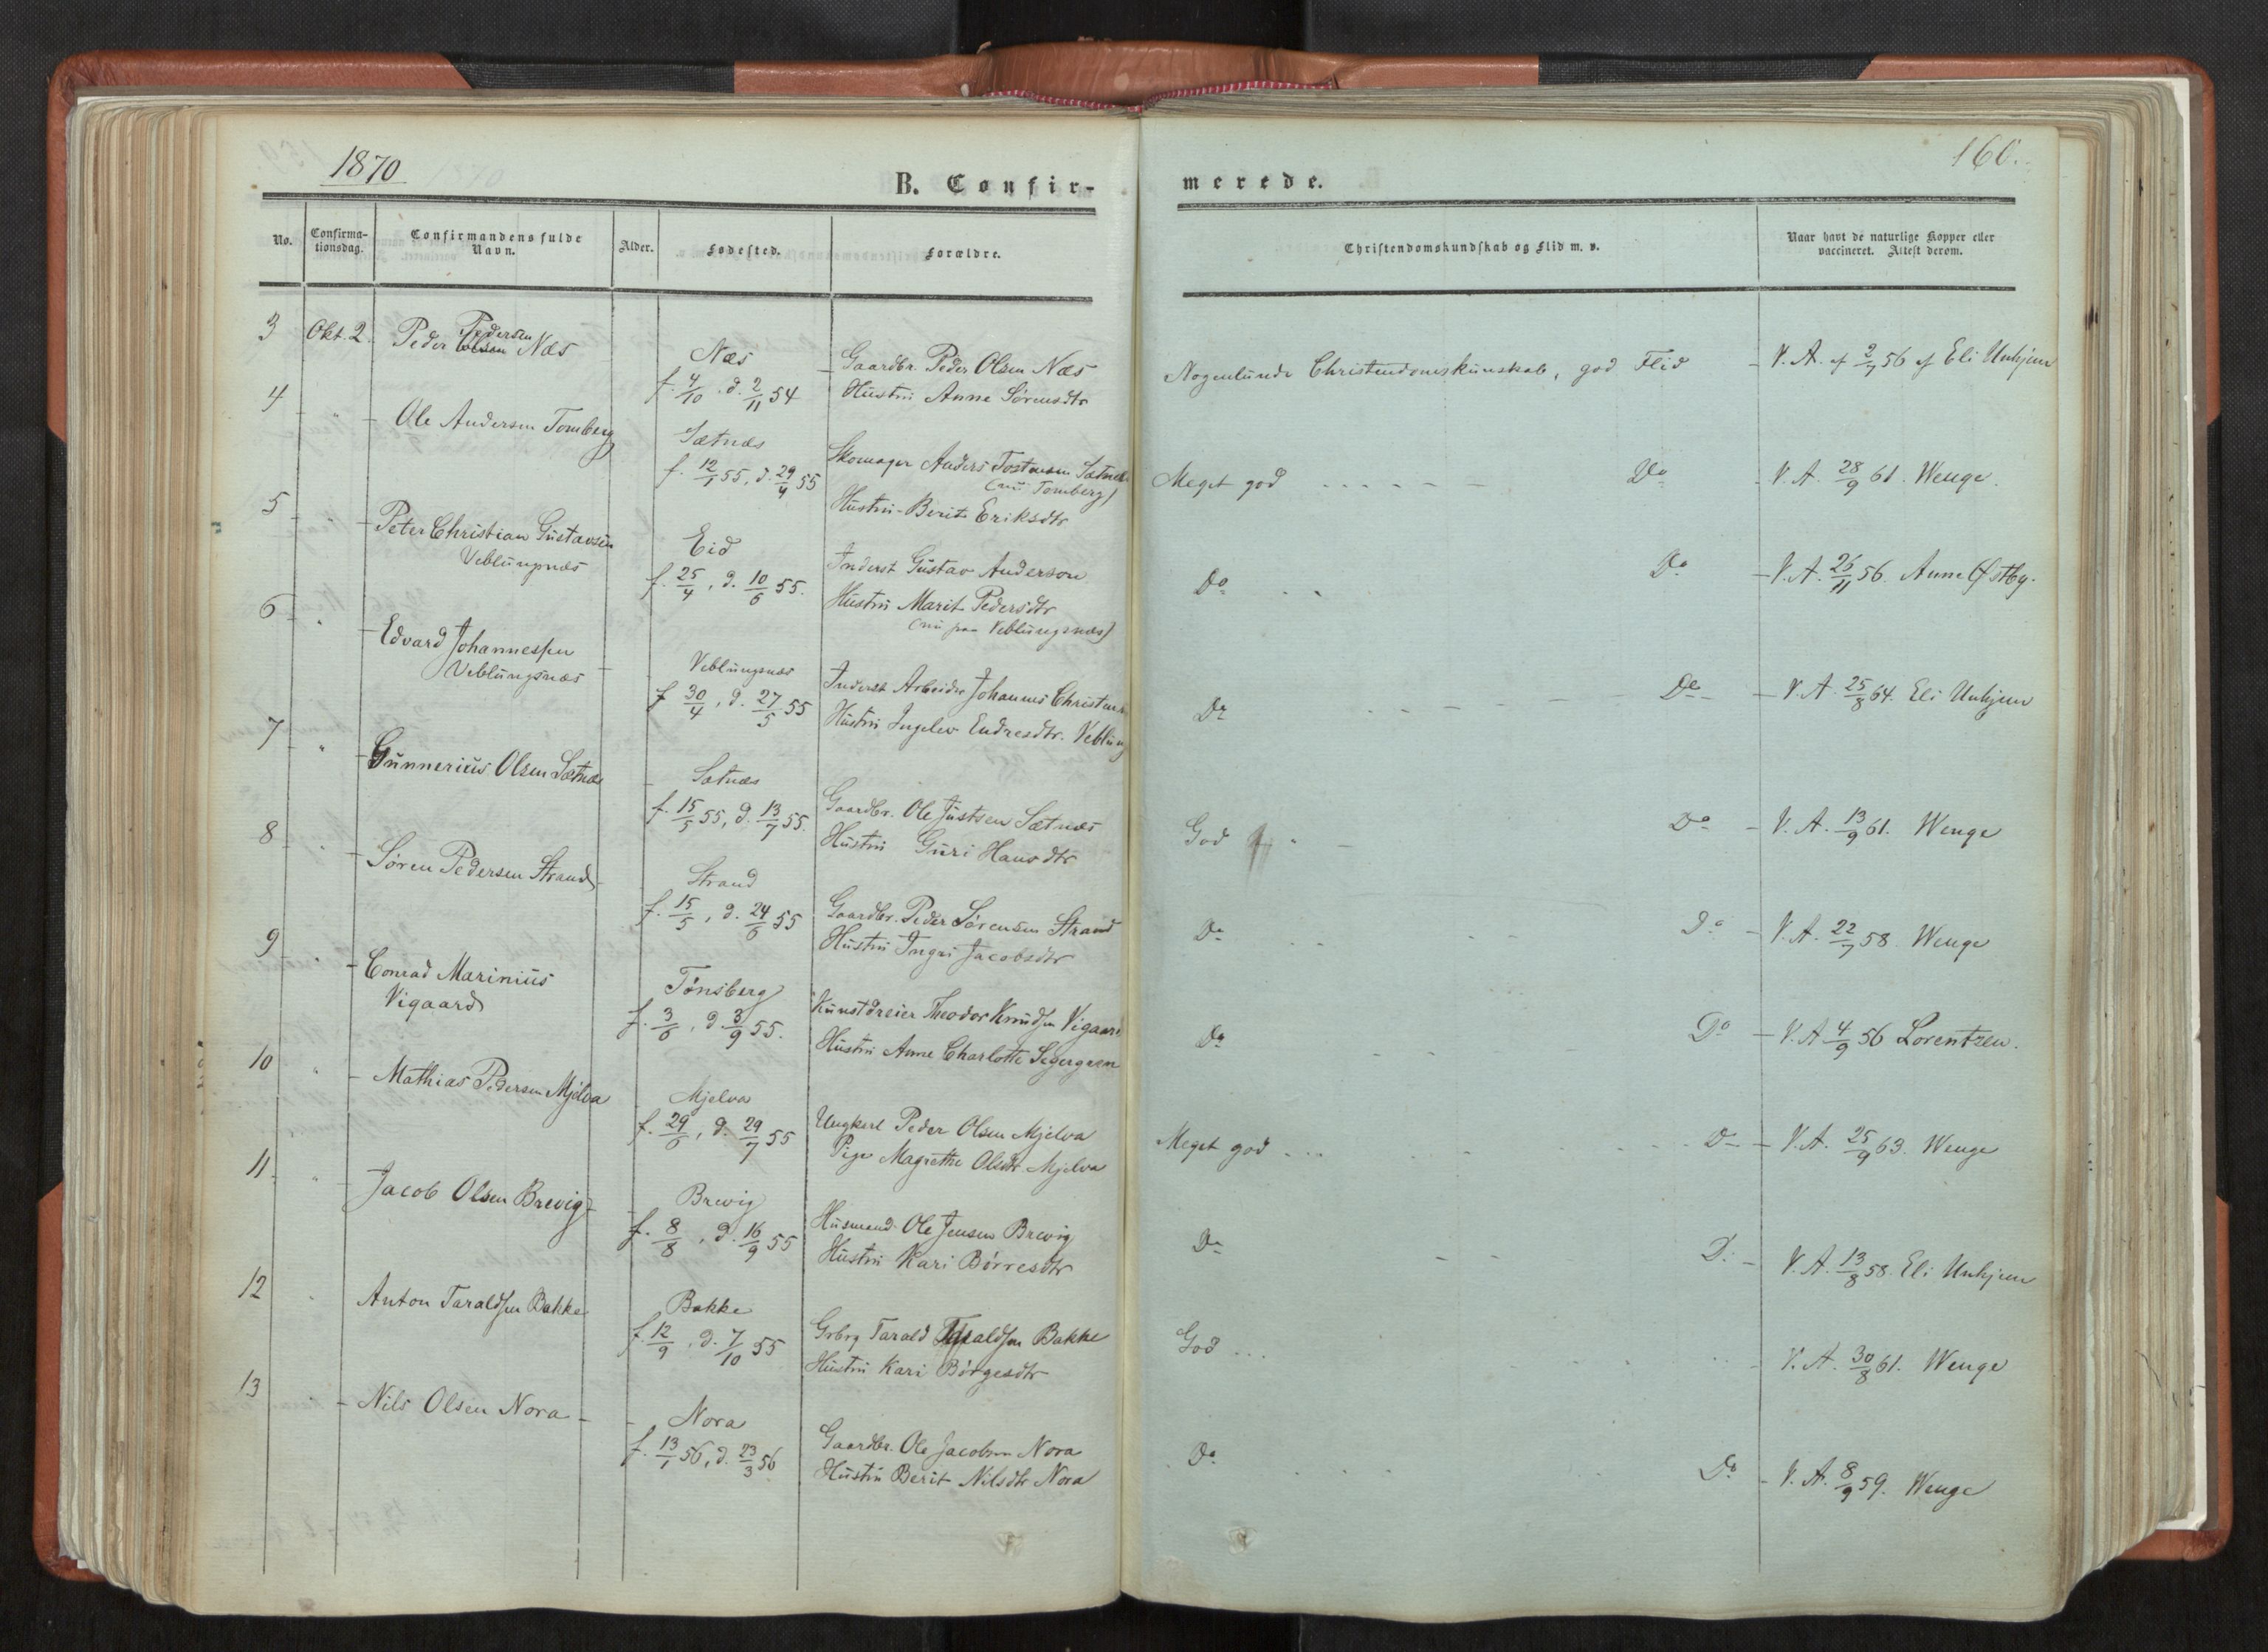 1870
160.
B. Confir-
merede.
No.
Confirma-
tionsdag.
Confirmandens fulde
Navn.
Alder.
Fødested.
Forældre.
Christendomskundskab og Flid m. v.
Naar havt de naturlige Kopper eller
vaccineret. Attest derom.
3 Okt. 2. Peder Pedersen Næs
Næs
f. 4/10 . d. 2/11 54
Gaardbr. Peder Olsen Næs
Hustru Anne Sørensdtr
Nogenlunde Christendomskunskab, god Flid
V. A. af 2/7 56 af Eli Unhjem
4 " Ole Andersen Tomberg
Sætnæs
f. 12/1 55, d. 29/4 55
Skomager Anders Tostensen Sætnæs
(nu Tomberg)
Hustru Berit Eriksdtr
Meget god Do
V. A. 28/9 61. Wenge.
5 " Peter Christian Gustavsen
Veblungnæs
Eid
f. 25/4, d. 10/6 55.
Inderst Gustav Anderson
Hustru Marit Pedersdtr
(nu paa Veblungsnæs)
Do Do
V. A. 26/11 56. Anne Østby.
6 " Edvard Johannessen
Veblungsnæs
Veblungsnæs
f 30/4, d. 27/5 55
Inderst Arbeider Johannes Christensen
Hustru Ingelev Endresdtr. Veblung
Do Do
V. A. 25/8 64. Eli Unhjem
7 " Gunnerius Olsen Sætnæs
Sætnæs
f. 15/5 55, d. 13/7 55.
Gaardbr. Ole Justsen Sætnæs
Hustru Guri Hansdtr
God Do
V. A. 13/9 61. Wenge
8 " Søren Pedersen Strand
Strand
f. 15/5, d. 24/6 55
Gaardbr. Peder Sørensen Strand
Hustru Ingri Jacobsdtr
Do Do
V. A. 22/7 58. Wenge
9 " Conrad Marinius
Vigaard
Tønsberg
f. 3/6, d. 3/9 55.
Kunstdreier Theodor Knudsen Vigaard
Hustru Anne Charlotte
Do Do
V. A 4/9 56 Lorentzen.
10 " Mathias Pedersen Mjelva
Mjelva
f. 29/6, d. 29/7 55
Ungkarl Peder Olsen Mjelva
Pige Magrethe Olsdtr Mjelva
Meget god Do
V. A. 25/9 63. Wenge
11 " Jacob Olsen Brevig
Brevig
f. 8/8, d. 16/9 55
Husmand Ole Jensen Brevig
Hustru Kari Børresdtr
Do Do
V. A. 13/8 58. Eli Unhjem
12 " Anton Taraldsen Bakke
Bakke
f. 12/9, d. 7/10 55
Grbrg Tarald Taraldsen Bakke
Hustru Kari Børgesdtr
God
V. A. 30/8 61. Wenge
13 " Nils Olsen Nora
Nora
f. 13/1 56, d. 23/3 56
Gaardbr. Ole Jacobsen Nora
Hustru Berit Nilsdtr Nora
Do Do
V. A. 8/9 59. Wenge